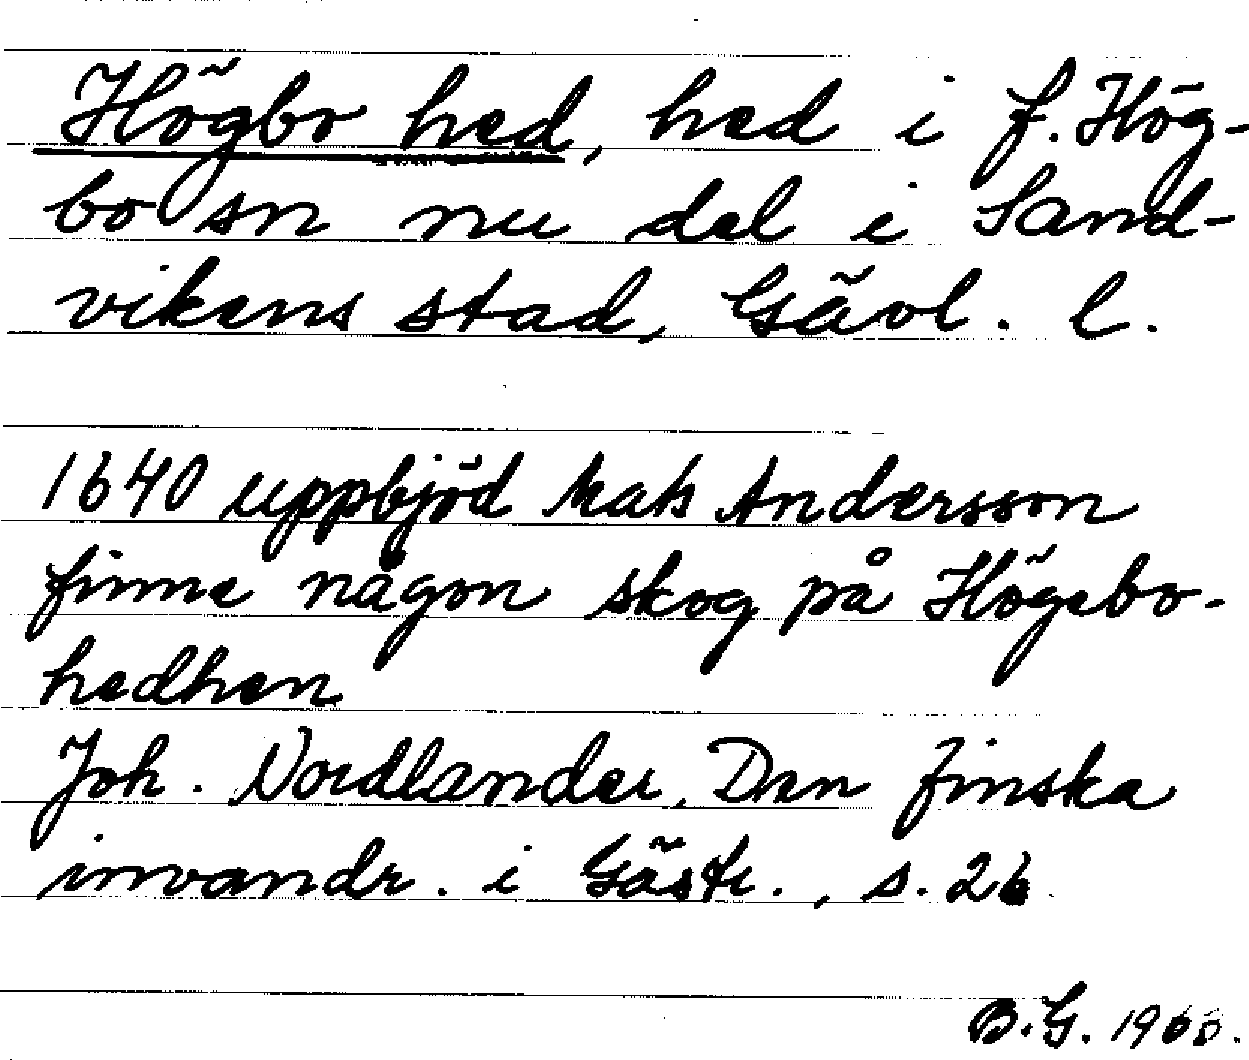 Högbo hed, hed i f. Hög-
bo sn nu del i Sand-
vikens stad, Gävl. l.
1640 uppbjöd Mats Andersson
finne någon skog på Högebo-
hedhen
Joh. Nordlander, Den finska
invandr. i Gästr., s. 26
B.G. 1968.